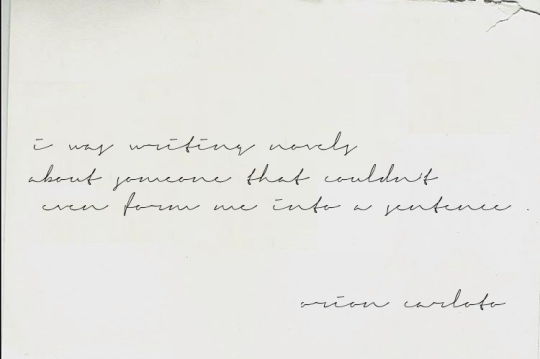 i was writing novels
about someone that couldn't
even form me into a sentence.
orion carloto